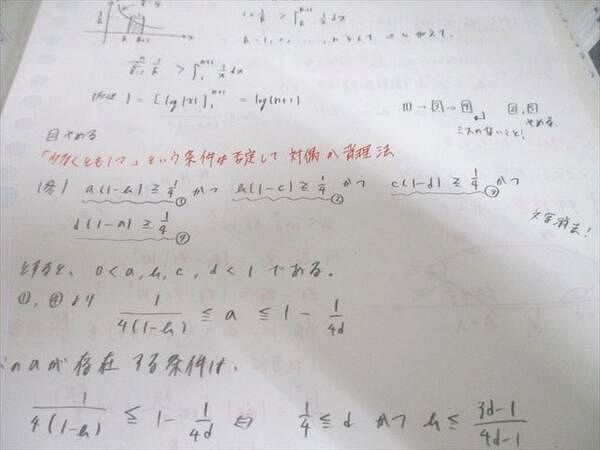 1・1/k > ∫_k^{k+1} 1/x dx
Σ_{k=1}^{n} 1/k > ∫_1^{n+1} 1/x dx
= [log|x|]_1^{n+1} = log(n+1)
①→②→④
ミスのないこと!
「少なくとも1つ」という条件は否定して 対偶か背理法
(答) a(1-b) ≧ 1/4 ① かつ b(1-c) ≧ 1/4 ② かつ c(1-d) ≧ 1/4 ③ かつ
d(1-a) ≧ 1/4 ④
文字消去!
とすると、0<a,b,c,d<1 である。
①,④より 1/4(1-b) ≦ a ≦ 1 - 1/4d
このaが存在する条件は、
1/4(1-b) ≦ 1 - 1/4d ⇔ 1/4 ≦ d かつ b ≦ 3d-1/4d-1